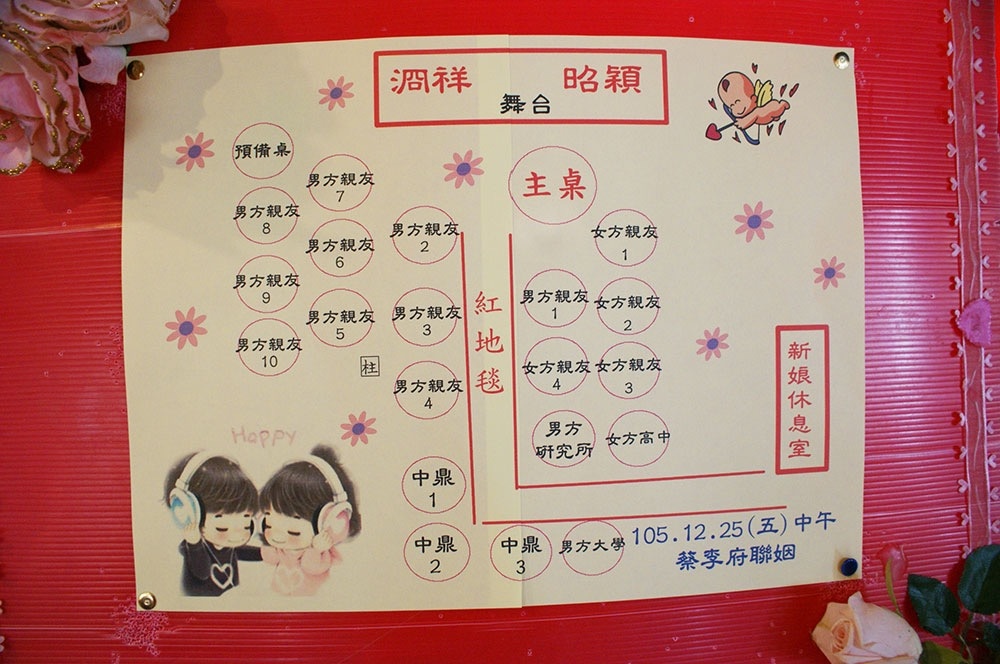 祥 昭穎
舞台
預備桌
男方親友
7
男方親友
8
男方親友
6
男方親友
9
男方親友
5
男方親友
10
柱
男方親友
2
男方親友
3
男方親友
4
中鼎
1
中鼎
2
紅地毯
主桌
女方親友
1
男方親友
1
女方親友
2
女方親友
4
女方親友
3
男方
研究所
女方高中
中鼎
3
男方大學
新娘休息室
Happy
105.12.25(五)中午
蔡李府聯姻